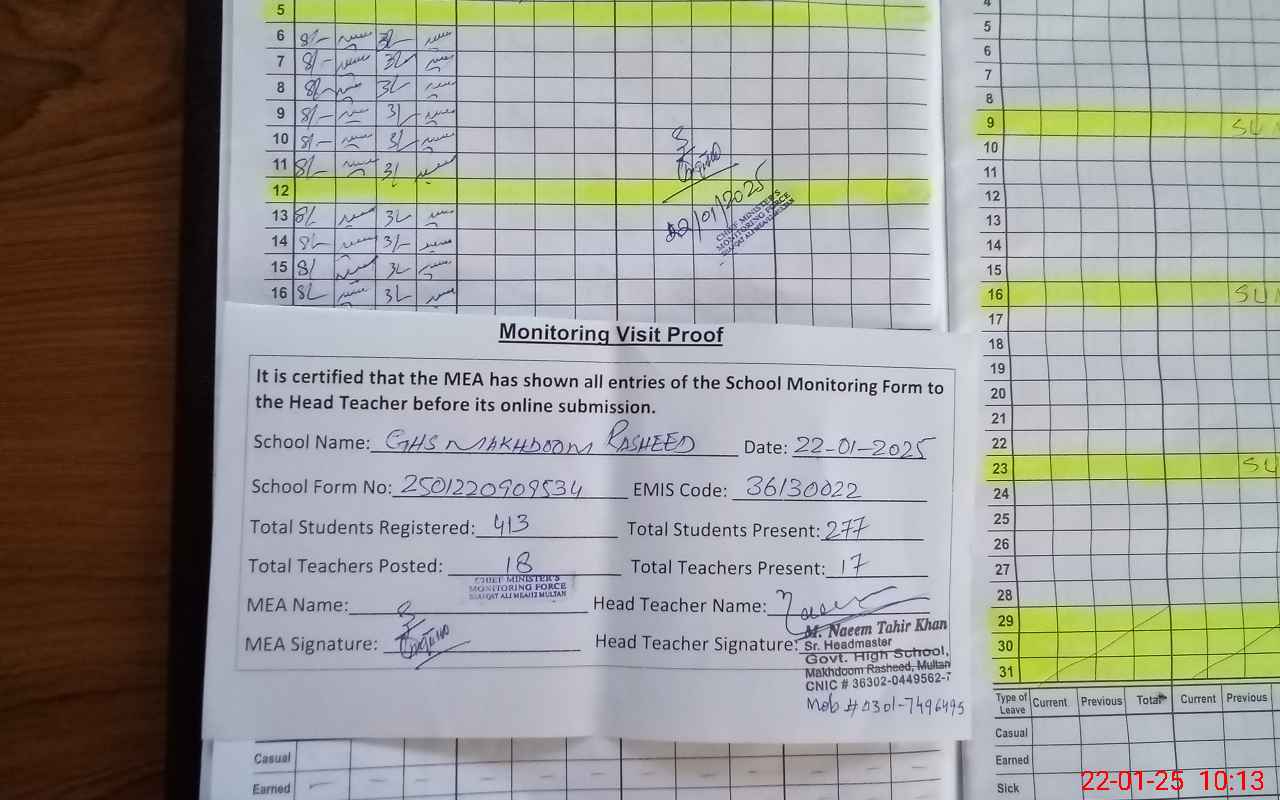 5
6 8/- 3/-
7 8/- 3/-
8 8/- 3/-
9 8/- 3/-
10 8/- 3/-
11 8/- 3/-
12
13 8/- 3/-
14 8/- 3/-
15 8/ 3/-
16 8/- 3/-
22/01/2025
CHIEF MINISTER'S
MONITORING FORCE
LIAQAT ALI MEA#12 MULTAN
Monitoring Visit Proof
It is certified that the MEA has shown all entries of the School Monitoring Form to
the Head Teacher before its online submission.
School Name: GHS MAKHDOOM RASHEED Date: 22-01-2025
School Form No: 2501220909534 EMIS Code: 36130022
Total Students Registered: 413 Total Students Present: 277
Total Teachers Posted: 18 Total Teachers Present: 17
CHIEF MINISTER'S
MONITORING FORCE
LIAQAT ALI MEA#12 MULTAN
MEA Name: Head Teacher Name: Naeem
MEA Signature: Head Teacher Signature:
M. Naeem Tahir Khan
Sr. Headmaster
Govt. High School,
Makhdoom Rasheed, Multan
CNIC # 36302-0449562-7
Mob # 0301-7496495
Casual
Earned
4
5
6
7
8
9 SU
10
11
12
13
14
15
16 SU
17
18
19
20
21
22
23 SU
24
25
26
27
28
29
30
31
Type of Leave Current Previous Total Current Previous
Casual
Earned
Sick
22-01-25 10:13